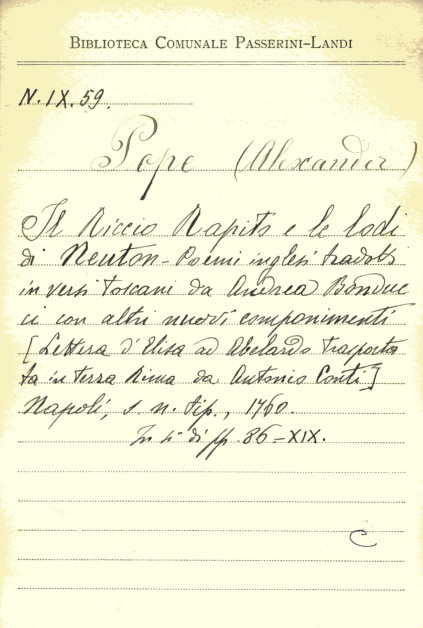 BIBLIOTECA COMUNALE PASSERINI-LANDI
N. IX. 59.
Pope (Alexander)
Il Riccio Rapito e le lodi
di Neuton - Poemi inglesi tradotti
in versi Toscani da Andrea Bonduc
ci con altri nuovi componimenti
[Lettera d'Elisa ad Abelardo trasporta
ta in terza Rima da Antonio Conti]
Napoli, s. n. tip., 1760.
In 4° di pp. 86-XIX.
C